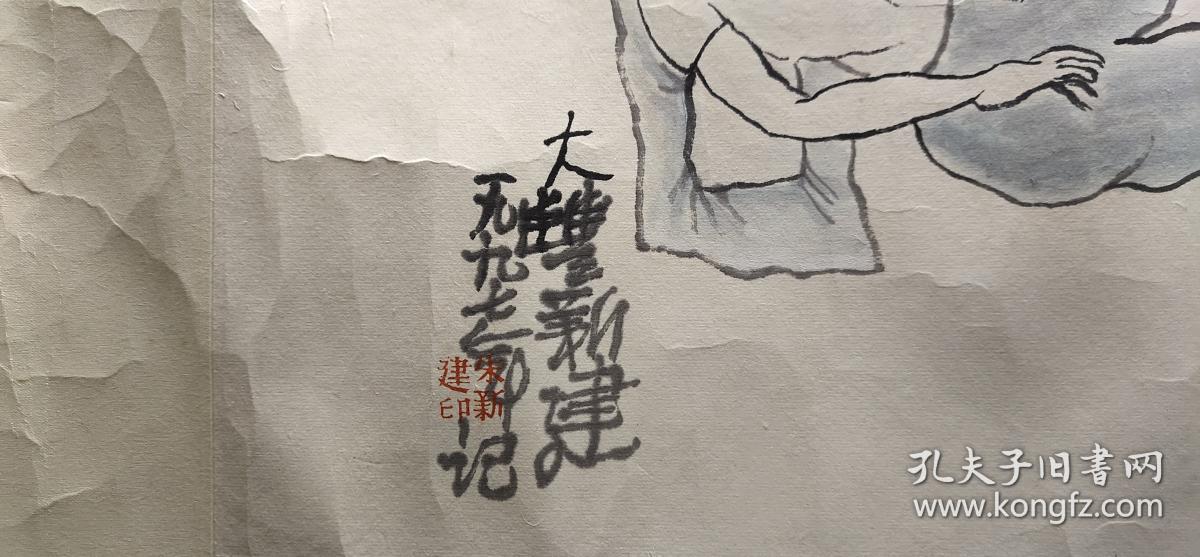 大豐新建
一九九七年印记
朱新
建印
孔夫子旧書网
www.kongfz.com